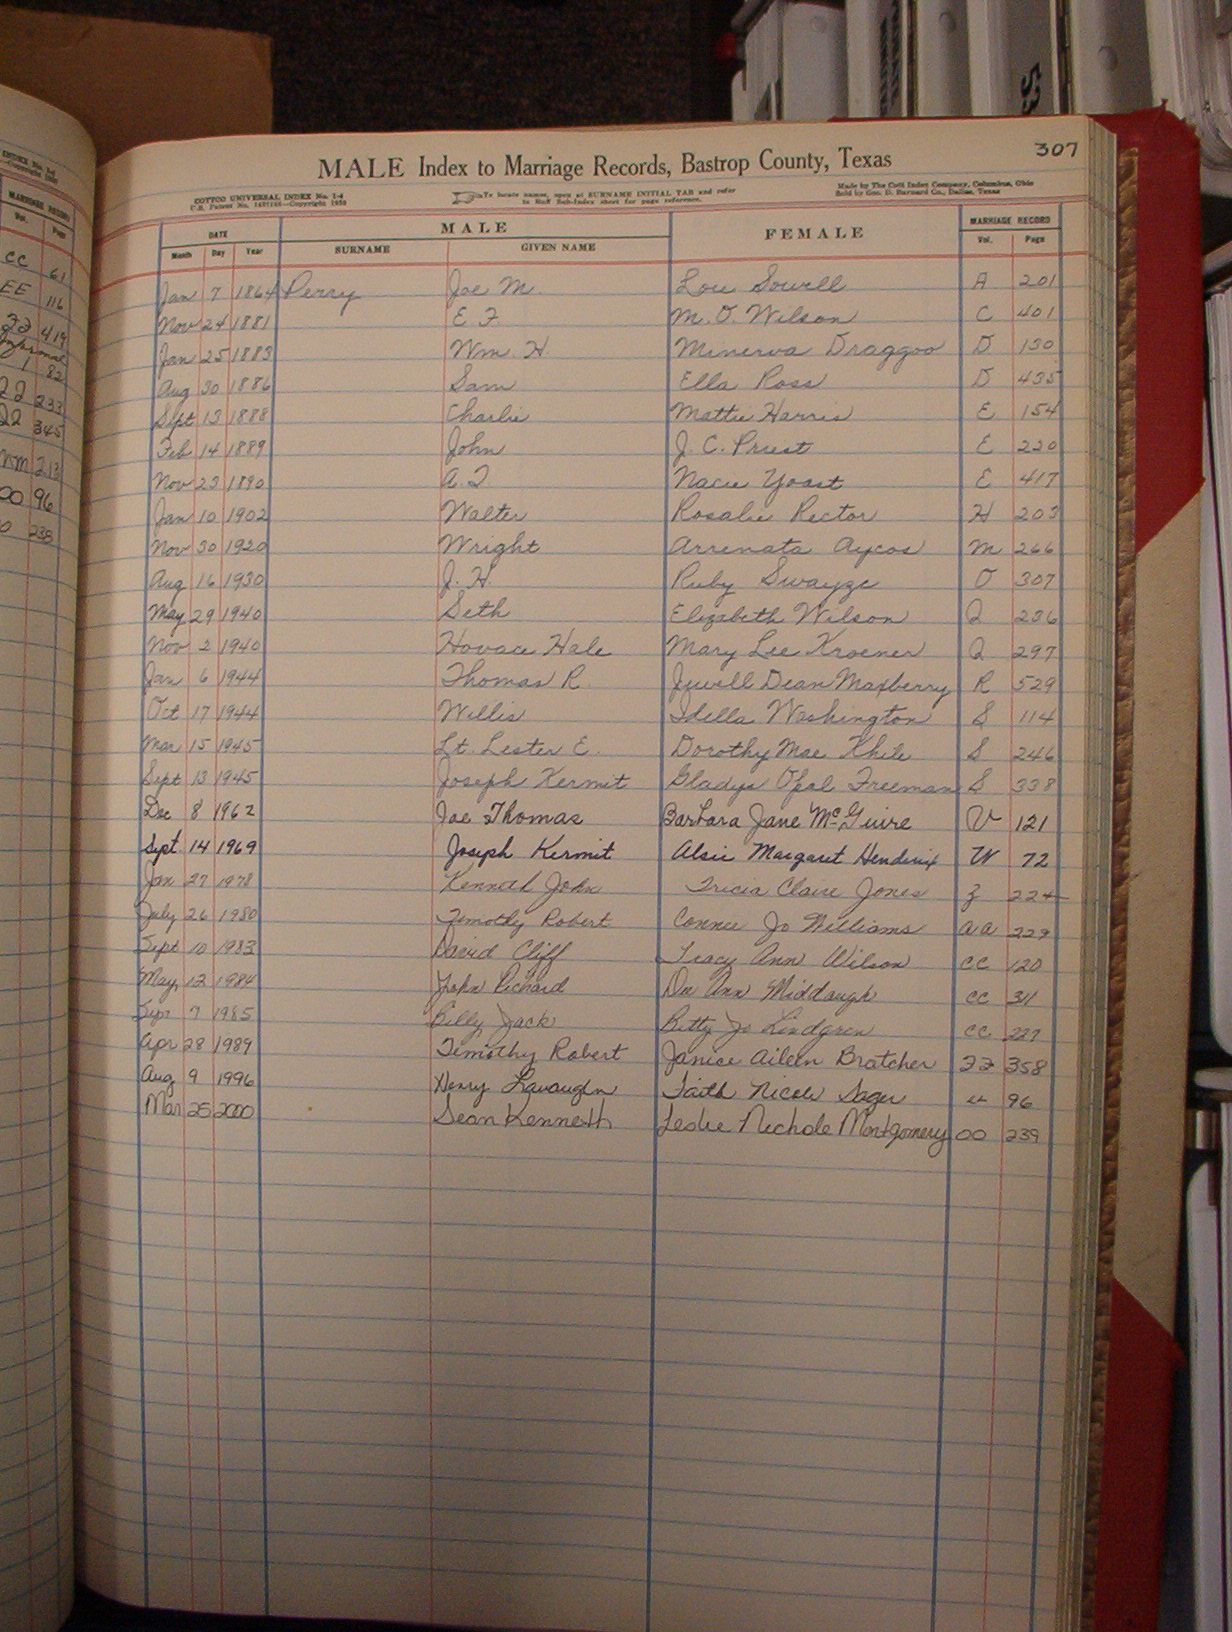 INDEX No. 1-4
Copyright 1950
MARRIAGE RECORD
Vol. Page
CC 61
EE 116
419
1 82
22 233
22 345
213
00 96
238
307
MALE Index to Marriage Records, Bastrop County, Texas
COTTCO UNIVERSAL INDEX No. 1-4
U.S. Patent No. —Copyright 1950
To locate names, open at SURNAME INITIAL TAB and refer
to Buff Sub-Index sheet for page reference.
Made by The Cott Index Company, Columbus, Ohio
Sold by Geo. D. Barnard Co., Dallas, Texas
DATE MALE FEMALE MARRIAGE RECORD
Month Day Year SURNAME GIVEN NAME Vol. Page
Jan 7 1864 Perry Joe M. Lou Sowell A 201
Nov 24 1881 E F M. O. Wilson C 401
Jan 25 1883 Wm. H. Minerva Draggoo D 130
Aug 30 1886 Sam Ella Ross D 435
Sept 13 1888 Charlie Mattie Harris E 154
Feb 14 1889 John J. C. Priest E 220
Nov 23 1890 A. T Nacie Yoast E 417
Jan 10 1902 Walter Rosalie Rector H 203
Nov 30 1920 Wright Arrenata Aycos M 266
Aug 16 1930 J. H. Ruby Swayze O 307
May 29 1940 Seth Elizabeth Wilson Q 236
Nov 2 1940 Horace Hale Mary Lee Kroener Q 297
Jan 6 1944 Thomas R Jewell Dean Maxberry R 529
Oct 17 1944 Willis Idella Washington S 114
Mar 15 1945 Lt. Lester E. Dorothy Mae Khile S 246
Sept 13 1945 Joseph Kermit Gladys Opal Freeman S 338
Dec 8 1962 Joe Thomas Barbara Jane McGuire V 121
Sept 14 1969 Joseph Kermit Alsie Margaret Hendrix W 72
Jan 27 1978 Kenneth John Tricia Claire Jones Z 224
July 26 1980 Timothy Robert Connie Jo Williams AA 229
Sept 10 1983 David Cliff Tracy Ann Wilson CC 120
May 12 1984 John Richard De Ann Middaugh CC 311
Sept 7 1985 Billy Jack Betty Jo Lindgren CC 227
Apr 28 1989 Timothy Robert Janice Aileen Bratcher 358
Aug 9 1996 Henry Lavaughn Faith Nicole Sager 96
Mar 25 2000 Sean Kenneth Leslie Nichole Montgomery 00 239